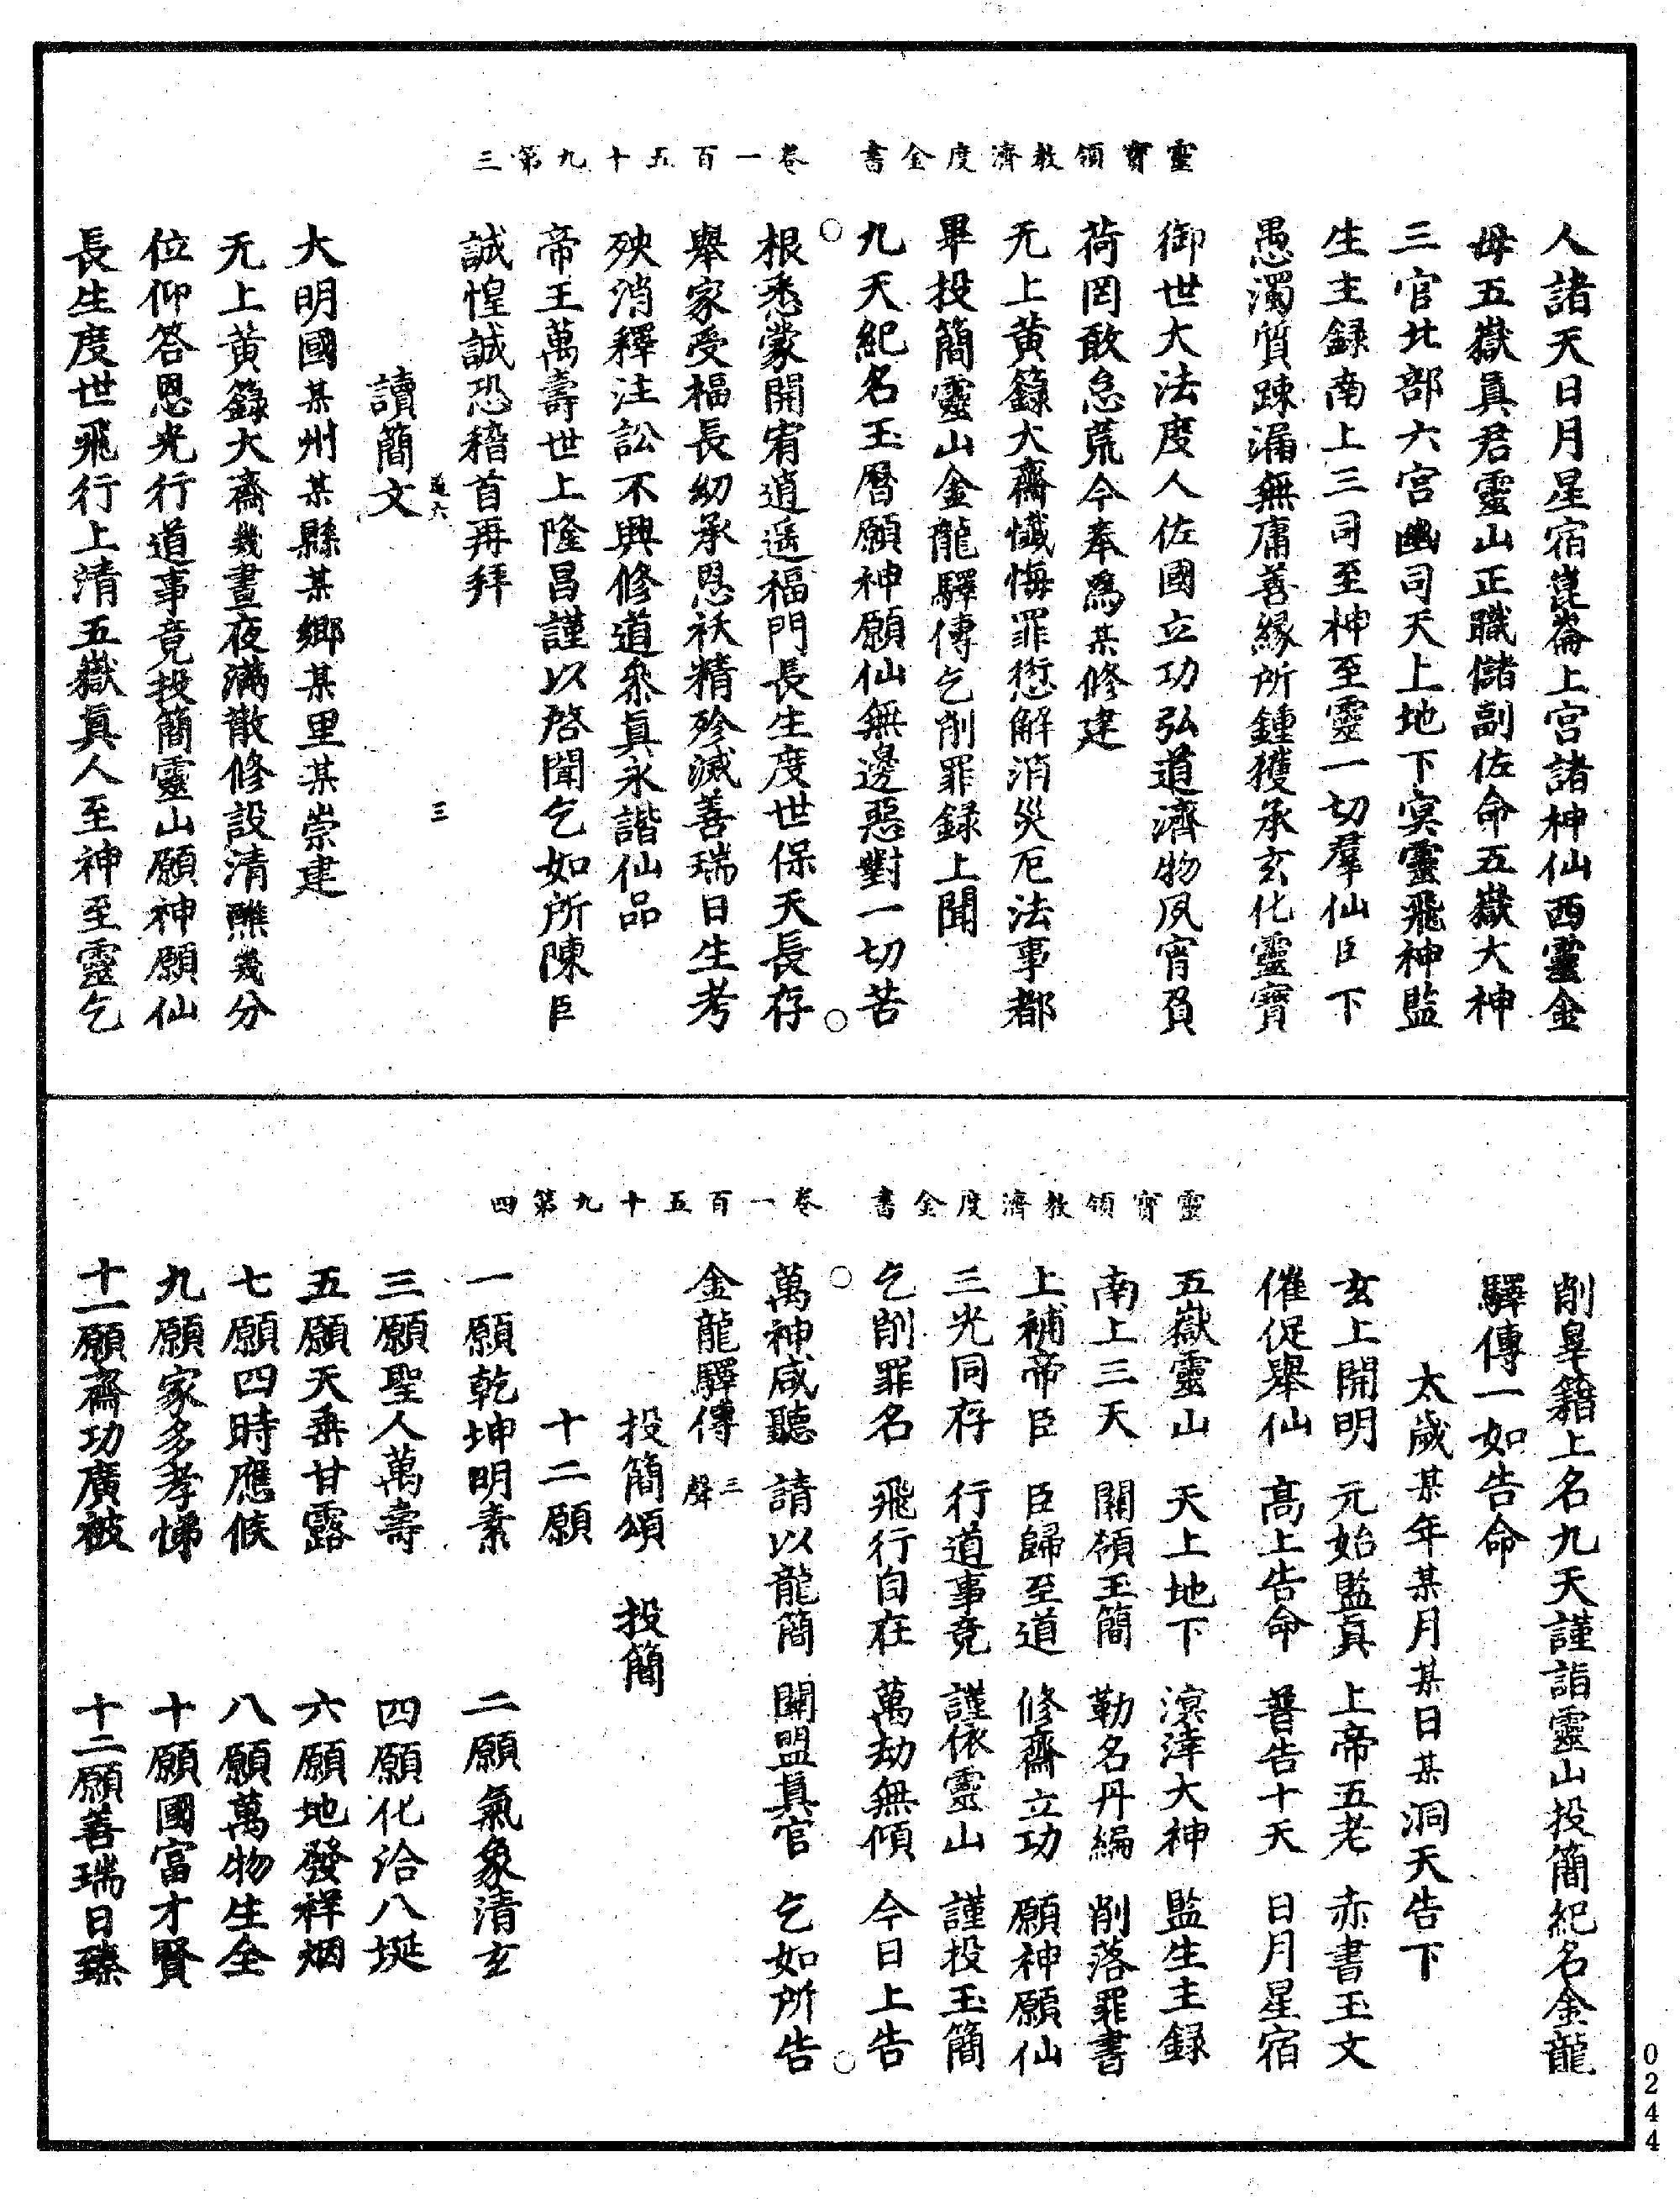 靈寶領教濟度金書　卷一百五十九第三
人諸天日月星宿崑崙上宮諸神仙西靈金
母五嶽真君靈山正職儲副佐命五嶽大神
三官北部六宮幽司天上地下冥靈飛神監
生主録南上三司至神至靈一切羣仙臣下
愚濁質踈漏無庸善緣所鍾獲承玄化靈寶
御世大法度人佐國立功弘道濟物夙宵負
荷罔敢怠荒今奉爲某修建
无上黃籙大齋懺悔罪愆解消災厄法事都
畢投簡靈山金龍驛傳乞削罪録上聞
九天紀名玉曆願神願仙無邊惡對一切苦
根悉蒙開宥逍遥福門長生度世保天長存
舉家受福長幼承恩祅精殄滅善瑞日生考
殃消釋注訟不興修道叅真永諧仙品
帝王萬壽世上隆昌謹以啓聞乞如所陳臣
誠惶誠恐稽首再拜
道六　三
讀簡文
大明國某州某縣某鄉某里某崇建
无上黃籙大齋幾晝夜滿散修設清醮幾分
位仰答恩光行道事竟投簡靈山願神願仙
長生度世飛行上清五嶽真人至神至靈乞
靈寶領教濟度金書　卷一百五十九第四
削辠籍上名九天謹詣靈山投簡紀名金龍
驛傳一如告命
太歲某年某月某日某洞天告下
玄上開明　元始監真　上帝五老　赤書玉文
催促舉仙　高上告命　普告十天　日月星宿
五嶽靈山　天上地下　溟涬大神　監生主録
南上三天　關領玉簡　勒名丹編　削落罪書
上補帝臣　臣歸至道　修齋立功　願神願仙
三光同存　行道事竟　謹依靈山　謹投玉簡
乞削罪名　飛行自在　萬劫無傾　今日上告
萬神咸聽　請以龍簡　關盟真官　乞如所告
金龍驛傳　三聲
投簡頌　投簡
十二願
一願乾坤明素　二願氣象清玄
三願聖人萬壽　四願化洽八埏
五願天垂甘露　六願地發祥烟
七願四時應候　八願萬物生全
九願家多孝悌　十願國富才賢
十一願齋功廣被　十二願善瑞日臻
0244